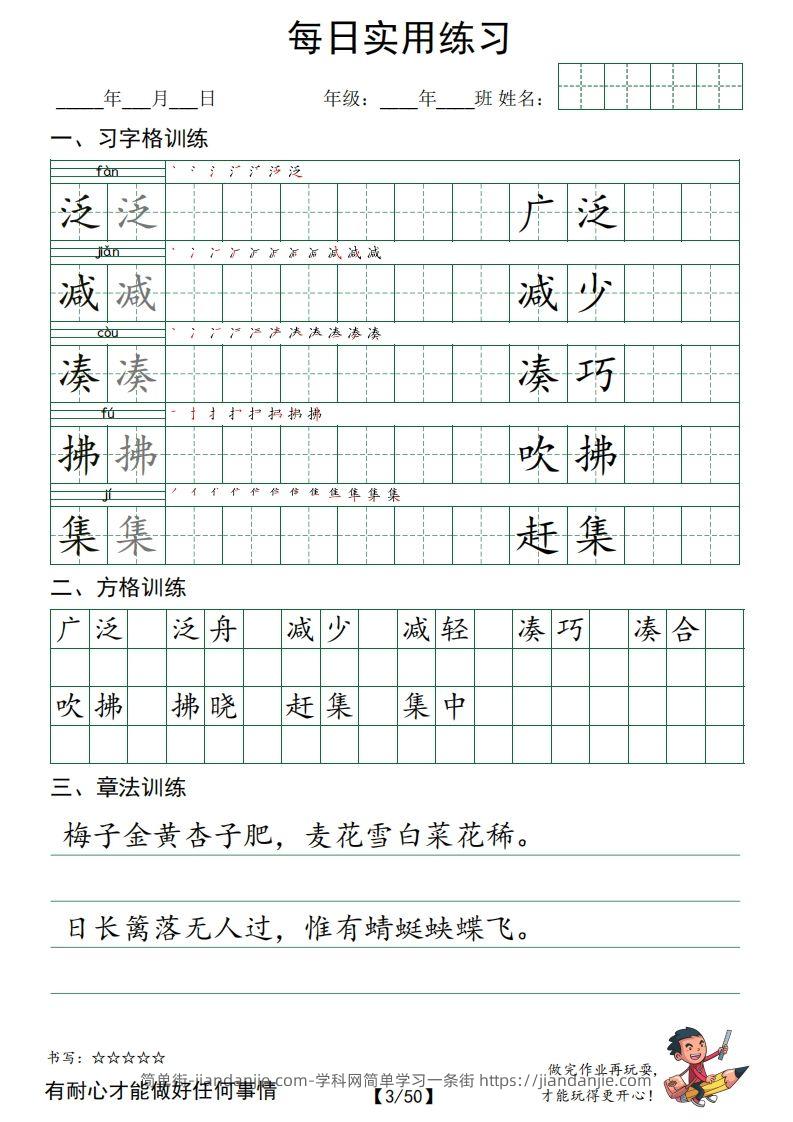 每日实用练习
_____年___月___日 年级：____年____班 姓名：
一、习字格训练
fàn
泛 泛 广 泛
jiǎn
减 减 减 少
còu
凑 凑 凑 巧
fú
拂 拂 吹 拂
jí
集 集 赶 集
二、方格训练
广泛 泛舟 减少 减轻 凑巧 凑合
吹拂 拂晓 赶集 集中
三、章法训练
梅子金黄杏子肥，麦花雪白菜花稀。
日长篱落无人过，惟有蜻蜓蛱蝶飞。
书写：☆☆☆☆☆
做完作业再玩耍，
简单街-jiandanjie.com-学科网简单学习一条街 https://jiandanjie.com
有耐心才能做好任何事情
【3/50】
才能玩得更开心！